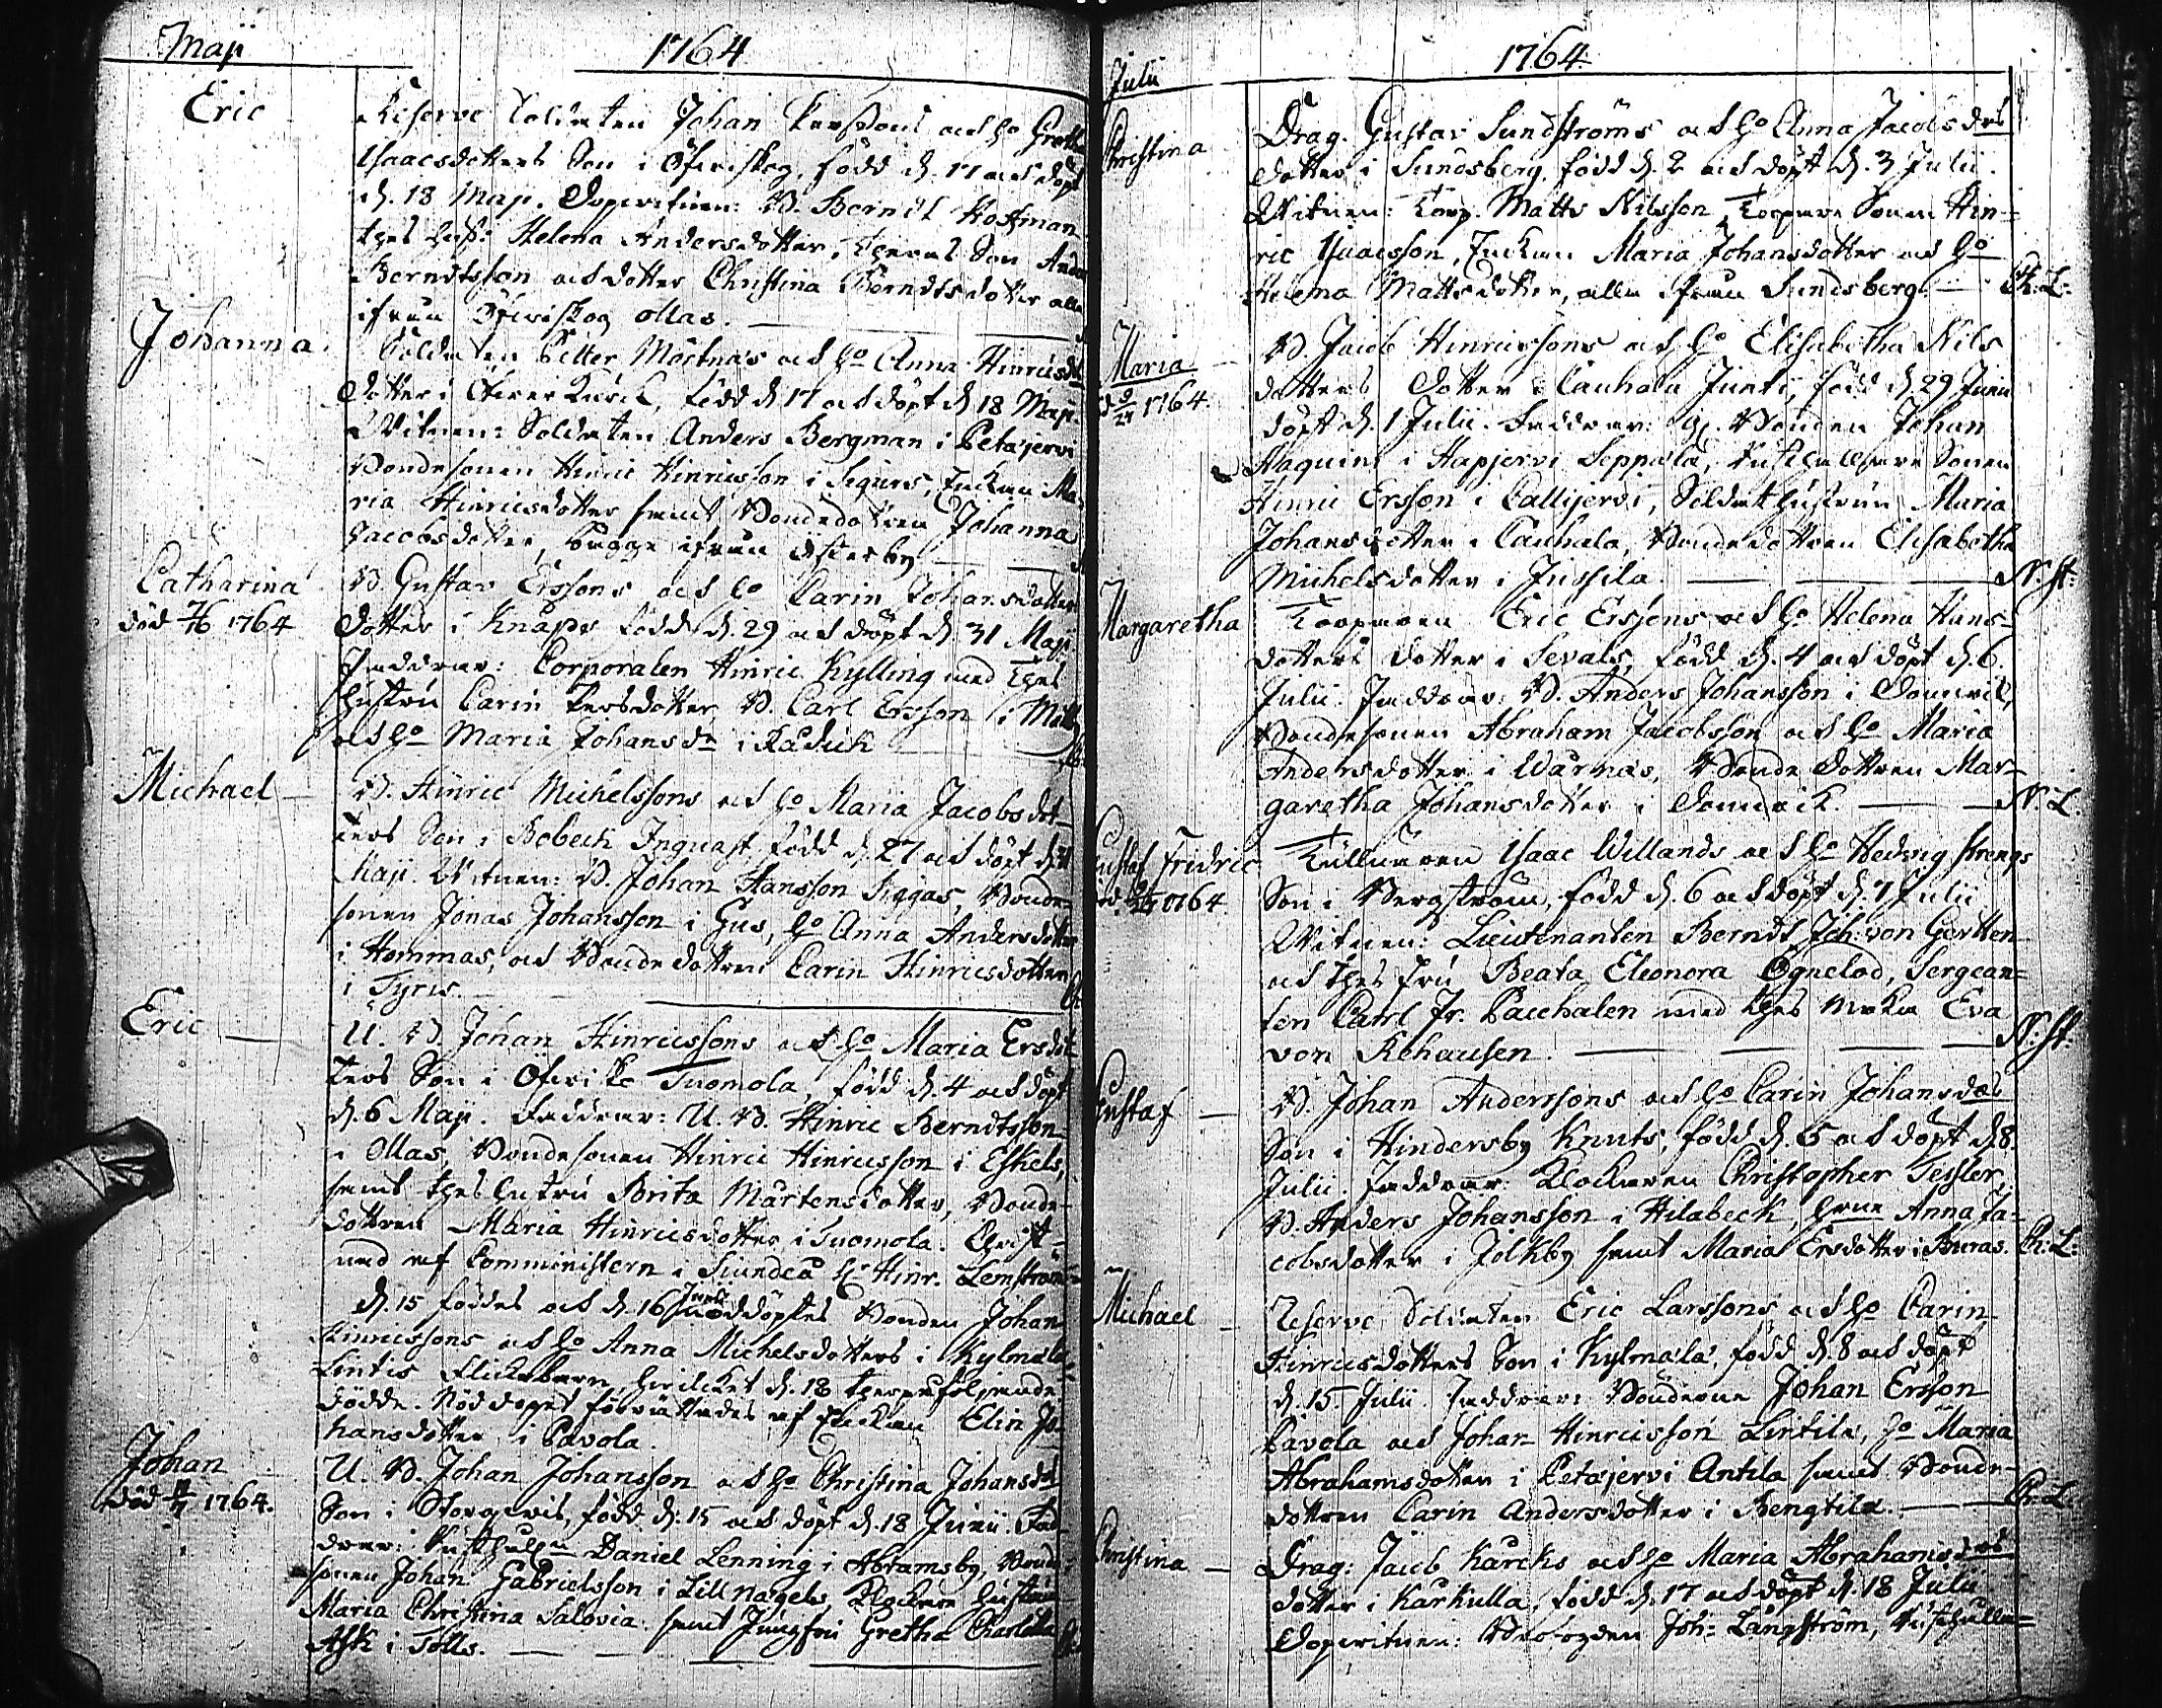 Maji 1764
Eric
Reserve Soldaten Johan Perssons och ho Greth
Isaacsdotters Son i Öfverskog, född d. 17 och döpt
d. 18 Maji. Dopvitnen: B. Berndt Kostman
thes hust: Helena Andersdotter, theras Son Anders
Berndtsson och dotter Christina Berndtsdotter alla
ifrån Öfverskog Ollas.
Johanna
Soldaten Petter Mörtnäs och ho Anna Hinricsdrs
dotter i Öfver Kurck, född d. 17 och döpt d. 18 Maji.
Vitnen: Soldaten Anders Bergman i Petajervi
Bondesonen Hinric Hinricsson i Sigurs, Enkan Ma-
ria Hinricsdotter samt Bondedotren Johanna
Jacobsdotter, begge ifrån Österby
Catharina
död 7/6 1764
B. Gustav Erssons och ho Carin Johansdotters
dotter i Knaps född d. 29 och döpt d. 31 Maji.
Faddrar: Corporalen Hinric Kylling med thes
hustru Carin Persdotter, B. Carl Ersson i
och ho Maria Johansdr i Rådick
Michael
B. Hinric Michelssons och ho Maria Jacobsdot-
ters Son i Bobeck Inguast, född d. 27 och döpt d. 31
Maji. Vitnen: B. Johan Hansson Riggas, Bonde-
sonen Jonas Johansson i Gus, ho Anna Andersdotter
i Hommas, och Bondedotren Carin Hinricsdotter
i Tyris.
Eric
U. B. Johan Hinricssons och ho Maria Ersdot
ters Son i Öfvitske Tuomola, född d. 4 och döpt
d. 6 Maji. Faddrar: U. B. Hinric Berndtsson
i Ollas, Bondesonen Hinric Hinricsson i Eskels,
samt thes hustru Brita Mårtensdotter, Bonde-
dotren Maria Hinricsdotter i Tuomola. Christ-
nad af Comministern i Siundeå H. Hinr. Lemström
d. 15 föddes och d. 16 Junii nöddöptes Bonden Johan
Hinricssons och ho Anna Michelsdotters i Kylmälä
Lintis flickebarn hvilcket d. 18 therpåföljande
dödde. Nöddopet förrättades af Enkan Elin Jo-
hansdotter i Pavola.
Johan
död 11/7 1764.
U. B. Johan Johansson och ho Christina Johansdrs
Son i Storgervis, född d. 15 och döpt d. 18 Junii. Fad-
drar: Daniel Lenning i Abramsby, Bonde-
sonen Johan Gabrielsson i Lill nägels, Klockare hustrun
Maria Christina Salovia samt Jungfru Gretha Charlotta
Ask i Tolls.
Julii 1764
Christina
Drag. Gustav Sundströms och ho Anna Jacobsdrs
dotter i Sundsberg, född d. 2 och döpt d. 3 Julii.
Vitnen: Torp. Matts Nilsson, Torpare Sonen Hin-
ric Isaacsson, Enkan Maria Johansdotter och ho
Helena Mattsdotter, alla ifrån Sundsberg. Ch: L:
Maria
1764.
B. Jacob Hinricssons och ho Elisabetha Nils
dotters dotter i Cauhala Junti, född d. 29 Junii
döpt d. 1 Julii. Faddrar: Bonden Johan
Haquins i Hapjervi Seppälä, Sonen
Hinric Ersson i Callijervi, Soldathustrun Maria
Johansdotter i Cauhala, Bondedotren Elisabetha
Michelsdotter i Jussila. N: St:
Margaretha
Torparen Eric Erssons och ho Helena Hans-
dotters dotter i Sevals, född d. 4 och döpt d. 6
Julii. Faddrar: B. Anders Johansson i Danvik,
Bondesonen Abraham Jacobsson och ho Maria
Andersdotter i Wärnäs, Bonde dotren Mar-
garetha Johansdotter i Danvick. N: L.
Gustaf Fridric
1764
Tullnaren Isaac Willands och ho Hedvig Strengs
Son i Bergstrom, född d. 6 och döpt d. 7 Julii
Vitnen: Lieutenanten Berndt Joh: von Gertten
och thes fru Beata Eleonora Ögnelod, Sergean-
ten Carl Fr. Pacchalen med thes maka Eva
von Rehausen. N: St:
Gustaf
B. Johan Anderssons och ho Carin Johansdrs
Son i Hindersby Knuts, född d. 5 och döpt d. 8.
Julii. Faddrar: Klockaren Christopher Tessler,
B. Anders Johansson i Hilabeck, Anna Ja-
cobsdotter i Jolkby samt Maria Ersdotter i Buras. Ch: L:
Michael
Reserve Soldaten Eric Larssons och ho Carin
Hinricsdotters Son i Kylmälä, född d. 8 och döpt
d. 15. Julii. Faddrar: Bönderne Johan Ersson
Pavola och Johan Hinricsson Lintila, ho Maria
Abrahamsdotter i Petajervi Antila samt Bonde-
dotren Carin Andersdotter i Bengtila. Ch: L.
Christina
Drag: Jacob Kurcks och ho Maria Abrahamsdrs
dotter i Karkulla, född d. 17 och döpt d. 18 Julii
Dopvitnen: Joh: Långström,